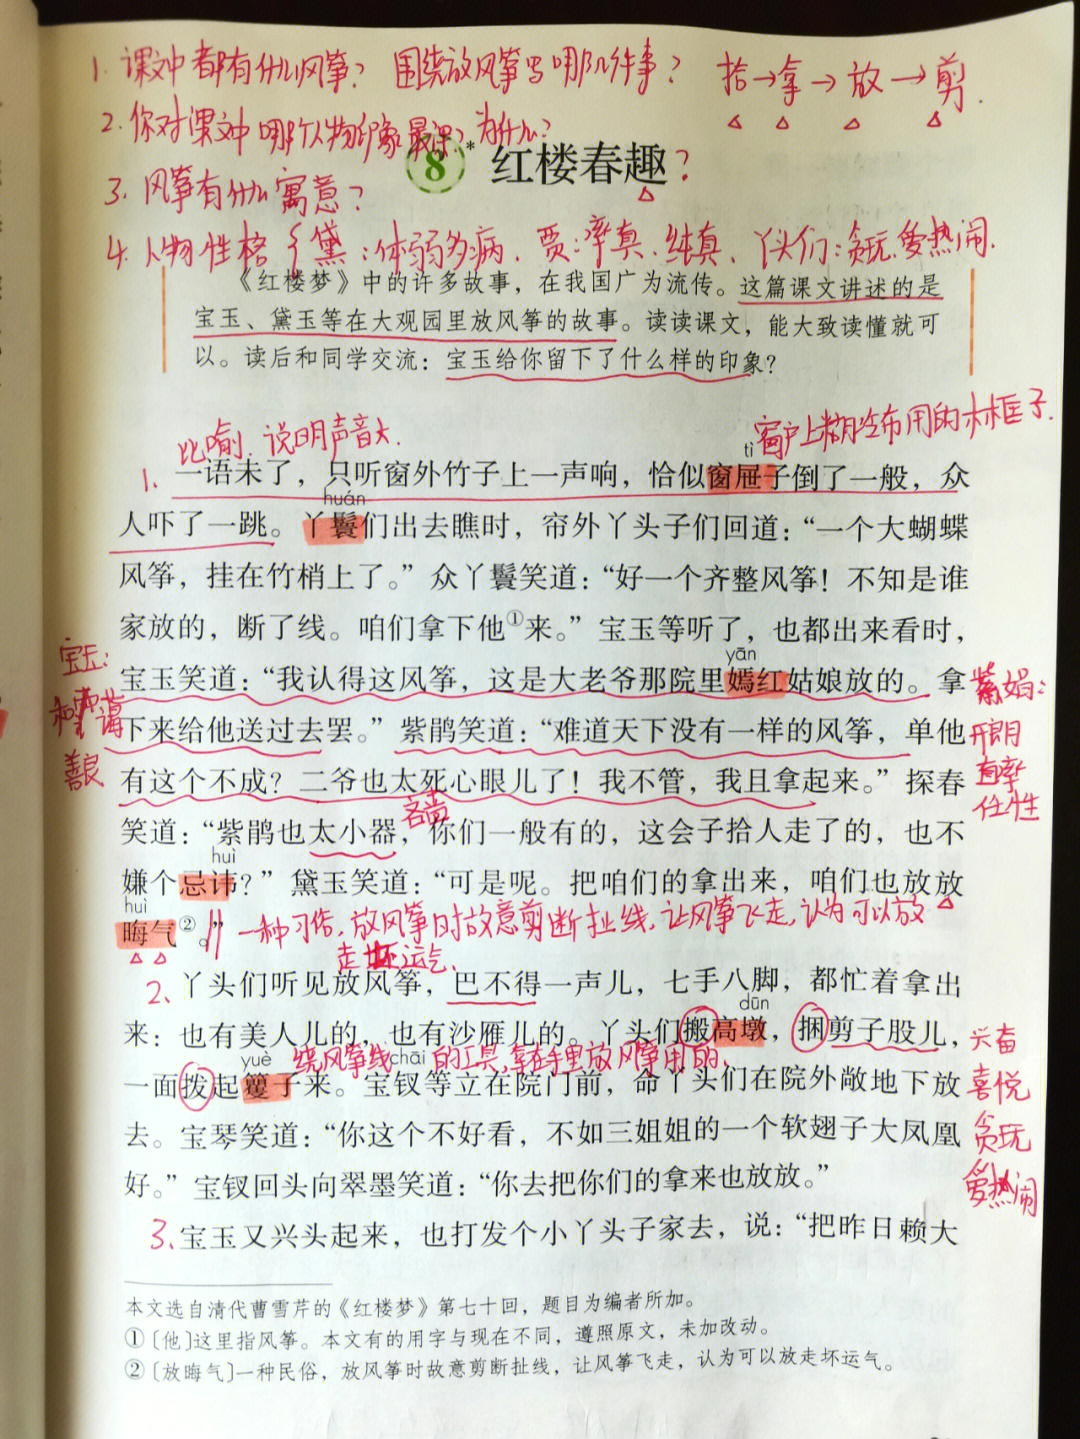 1. 课文中都有什么风筝？ 围绕放风筝写哪几件事？ 拾→拿→放→剪.
2. 你对课文中哪个人物印象最深，为什么？
8* 红楼春趣？
3. 风筝有什么寓意？
4. 人物性格 { 黛：体弱多病、贾：率真、纯真、丫头们：贪玩、爱热闹.
《红楼梦》中的许多故事，在我国广为流传。这篇课文讲述的是
宝玉、黛玉等在大观园里放风筝的故事。读读课文，能大致读懂就可
以。读后和同学交流：宝玉给你留下了什么样的印象？
比喻，说明声音大.
窗户上糊冷布用的木框子.
tì
1. 一语未了，只听窗外竹子上一声响，恰似窗屉子倒了一般，众
huán
人吓了一跳。丫鬟们出去瞧时，帘外丫头子们回道：“一个大蝴蝶
风筝，挂在竹梢上了。”众丫鬟笑道：“好一个齐整风筝！不知是谁
家放的，断了线。咱们拿下他①来。”宝玉等听了，也都出来看时，
yān
宝玉笑道：“我认得这风筝，这是大老爷那院里嫣红姑娘放的。拿
下来给他送过去罢。”紫鹃笑道：“难道天下没有一样的风筝，单他
有这个不成？二爷也太死心眼儿了！我不管，我且拿起来。”探春
宝玉：
和蔼
善良
紫娟：
开朗
直率
任性
吝啬
笑道：“紫鹃也太小器，你们一般有的，这会子拾人走了的，也不
huì
嫌个忌讳？”黛玉笑道：“可是呢。把咱们的拿出来，咱们也放放
huì
晦气②。”
一种习俗，放风筝时故意剪断扯线，让风筝飞走，认为可以放
走坏运气.
2、丫头们听见放风筝，巴不得一声儿，七手八脚，都忙着拿出
dūn
来：也有美人儿的，也有沙雁儿的。丫头们搬高墩，捆剪子股儿，
绕风筝线的工具，拿在手里放风筝用的.
yuè chāi
一面拨起籰子来。宝钗等立在院门前，命丫头们在院外敞地下放
去。宝琴笑道：“你这个不好看，不如三姐姐的一个软翅子大凤凰
好。”宝钗回头向翠墨笑道：“你去把你们的拿来也放放。”
兴奋
喜悦
贪玩
爱热闹
3、宝玉又兴头起来，也打发个小丫头子家去，说：“把昨日赖大
本文选自清代曹雪芹的《红楼梦》第七十回，题目为编者所加。
①〔他〕这里指风筝。本文有的用字与现在不同，遵照原文，未加改动。
②〔放晦气〕一种民俗，放风筝时故意剪断扯线，让风筝飞走，认为可以放走坏运气。